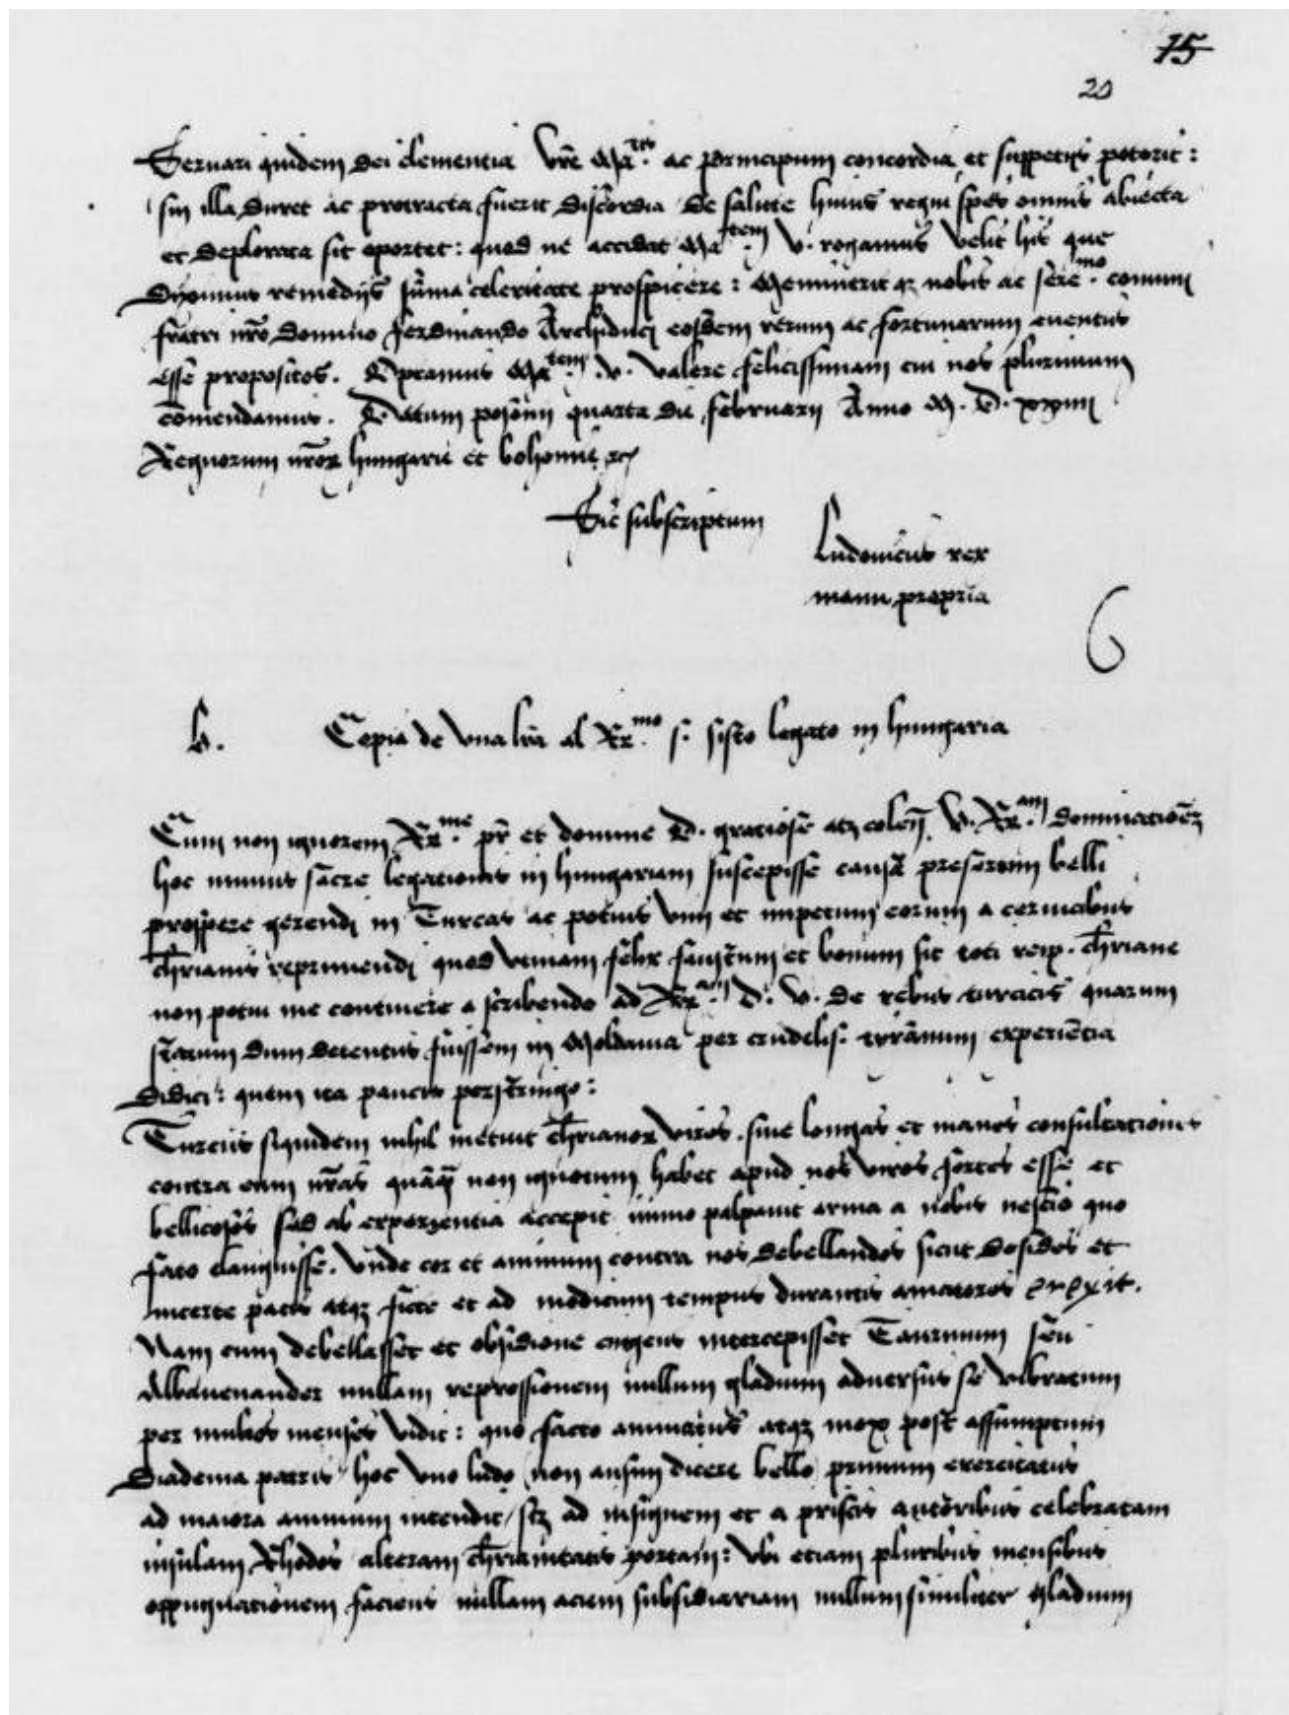 15
20
Seruari quidem dei clementia Vrē Ma.tis ac principum concordia et suppetijs poterit:
sin illa duret ac protracta fuerit discordia de salute huius regni spes omnis abiecta
et deplorata sit oportet: quod ne accidat Ma.tem V. rogamus velit his que
diximus remedijs sūma celeritate prospicere: Meminerit qz nobis ac sere.mo comuni
fratri nrō domino ferdinando Archiduci eosdem rerum ac fortunarum euentus
esse propositos. Optamus Ma.tem .v. valere felicissimam cui nos plurimum
cōmendamus. Datum posonij quarta die februarij Anno M. D. xxiiij
Regnorum nrōr hungarie et bohemie
Sic subscriptum
Ludouicus rex
manu propria
6
b. Copia de vna lrā al R.mo s. sisto legato in hungaria
Cum non ignorem R.me pr̄ et domine D. gratiose atqz colen̄. V. R.am dominatioēz
hoc munus sacre legationis in hungariam suscepisse causā presertim belli
prospere gerendi in Turcas ac potius vim et impetum eorum a ceruicibus
chr̄ianis reprimendi quod vtinam felix faustum et bonum sit toti reip. chr̄iane
non potui me continere a scribendo ad R.am D. V. de rebus turcicis quarum
statum dum detentus fuissem in Moldauia per crudelis. tyrānum experiētia
didici: quem ita paucis perstringo:
Turcus siquidem nihil metuit chr̄ianor viros. siue longas et inanes consultationes
contra eum nrās quāq̄ non ignotum habet apud nos viros fortes esse et
bellicosos sed ab experientia accepit immo palpauit arma a nobis nescio quo
fato elanguisse. Vnde cor et animum contra nos debellandos sicut desides et
incerte pacis atqz ficte et ad modicum tempus durantis amatores erexit.
Nam cum debellasset et obsidione cingens intercepisset Taurinum seu
Albanenander nullam repressionem nullum gladium aduersus se vibratum
per multos menses vidit: quo facto animatus atqz mox post assumptum
diadema patris hoc vno ludo (non ausim dicere bello) primum exercitatus
ad maiora animum intendit / scz ad insignem et a priscis autoribus celebratam
insulam Rhodos alteram chr̄ianitatis portam: Vbi etiam pluribus mensibus
oppugnationem faciens nullam aciem subsidiariam nullum similiter gladium